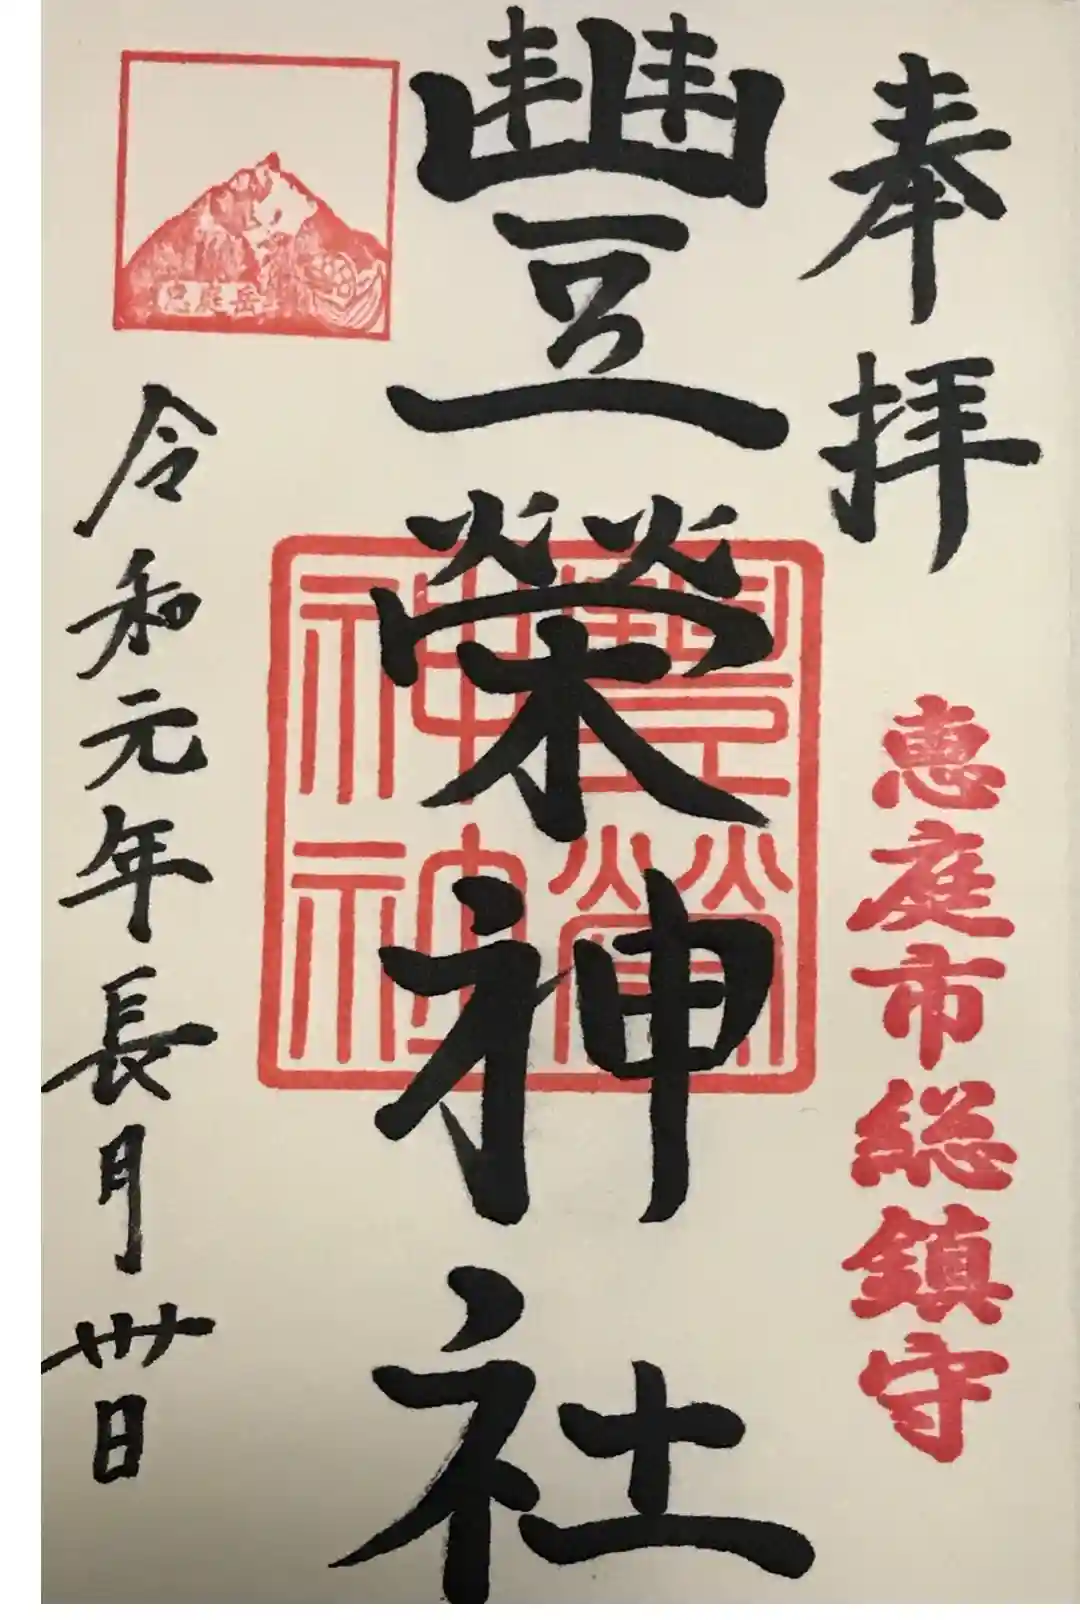 奉拝
恵庭市総鎮守
豐榮神社
豊榮神社
恵庭岳
令和元年長月卅日